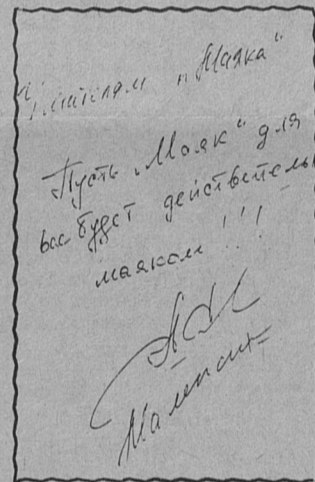 Читателям „Маяка“
Пусть „Маяк“ для
вас будет действитель
маяком!!!